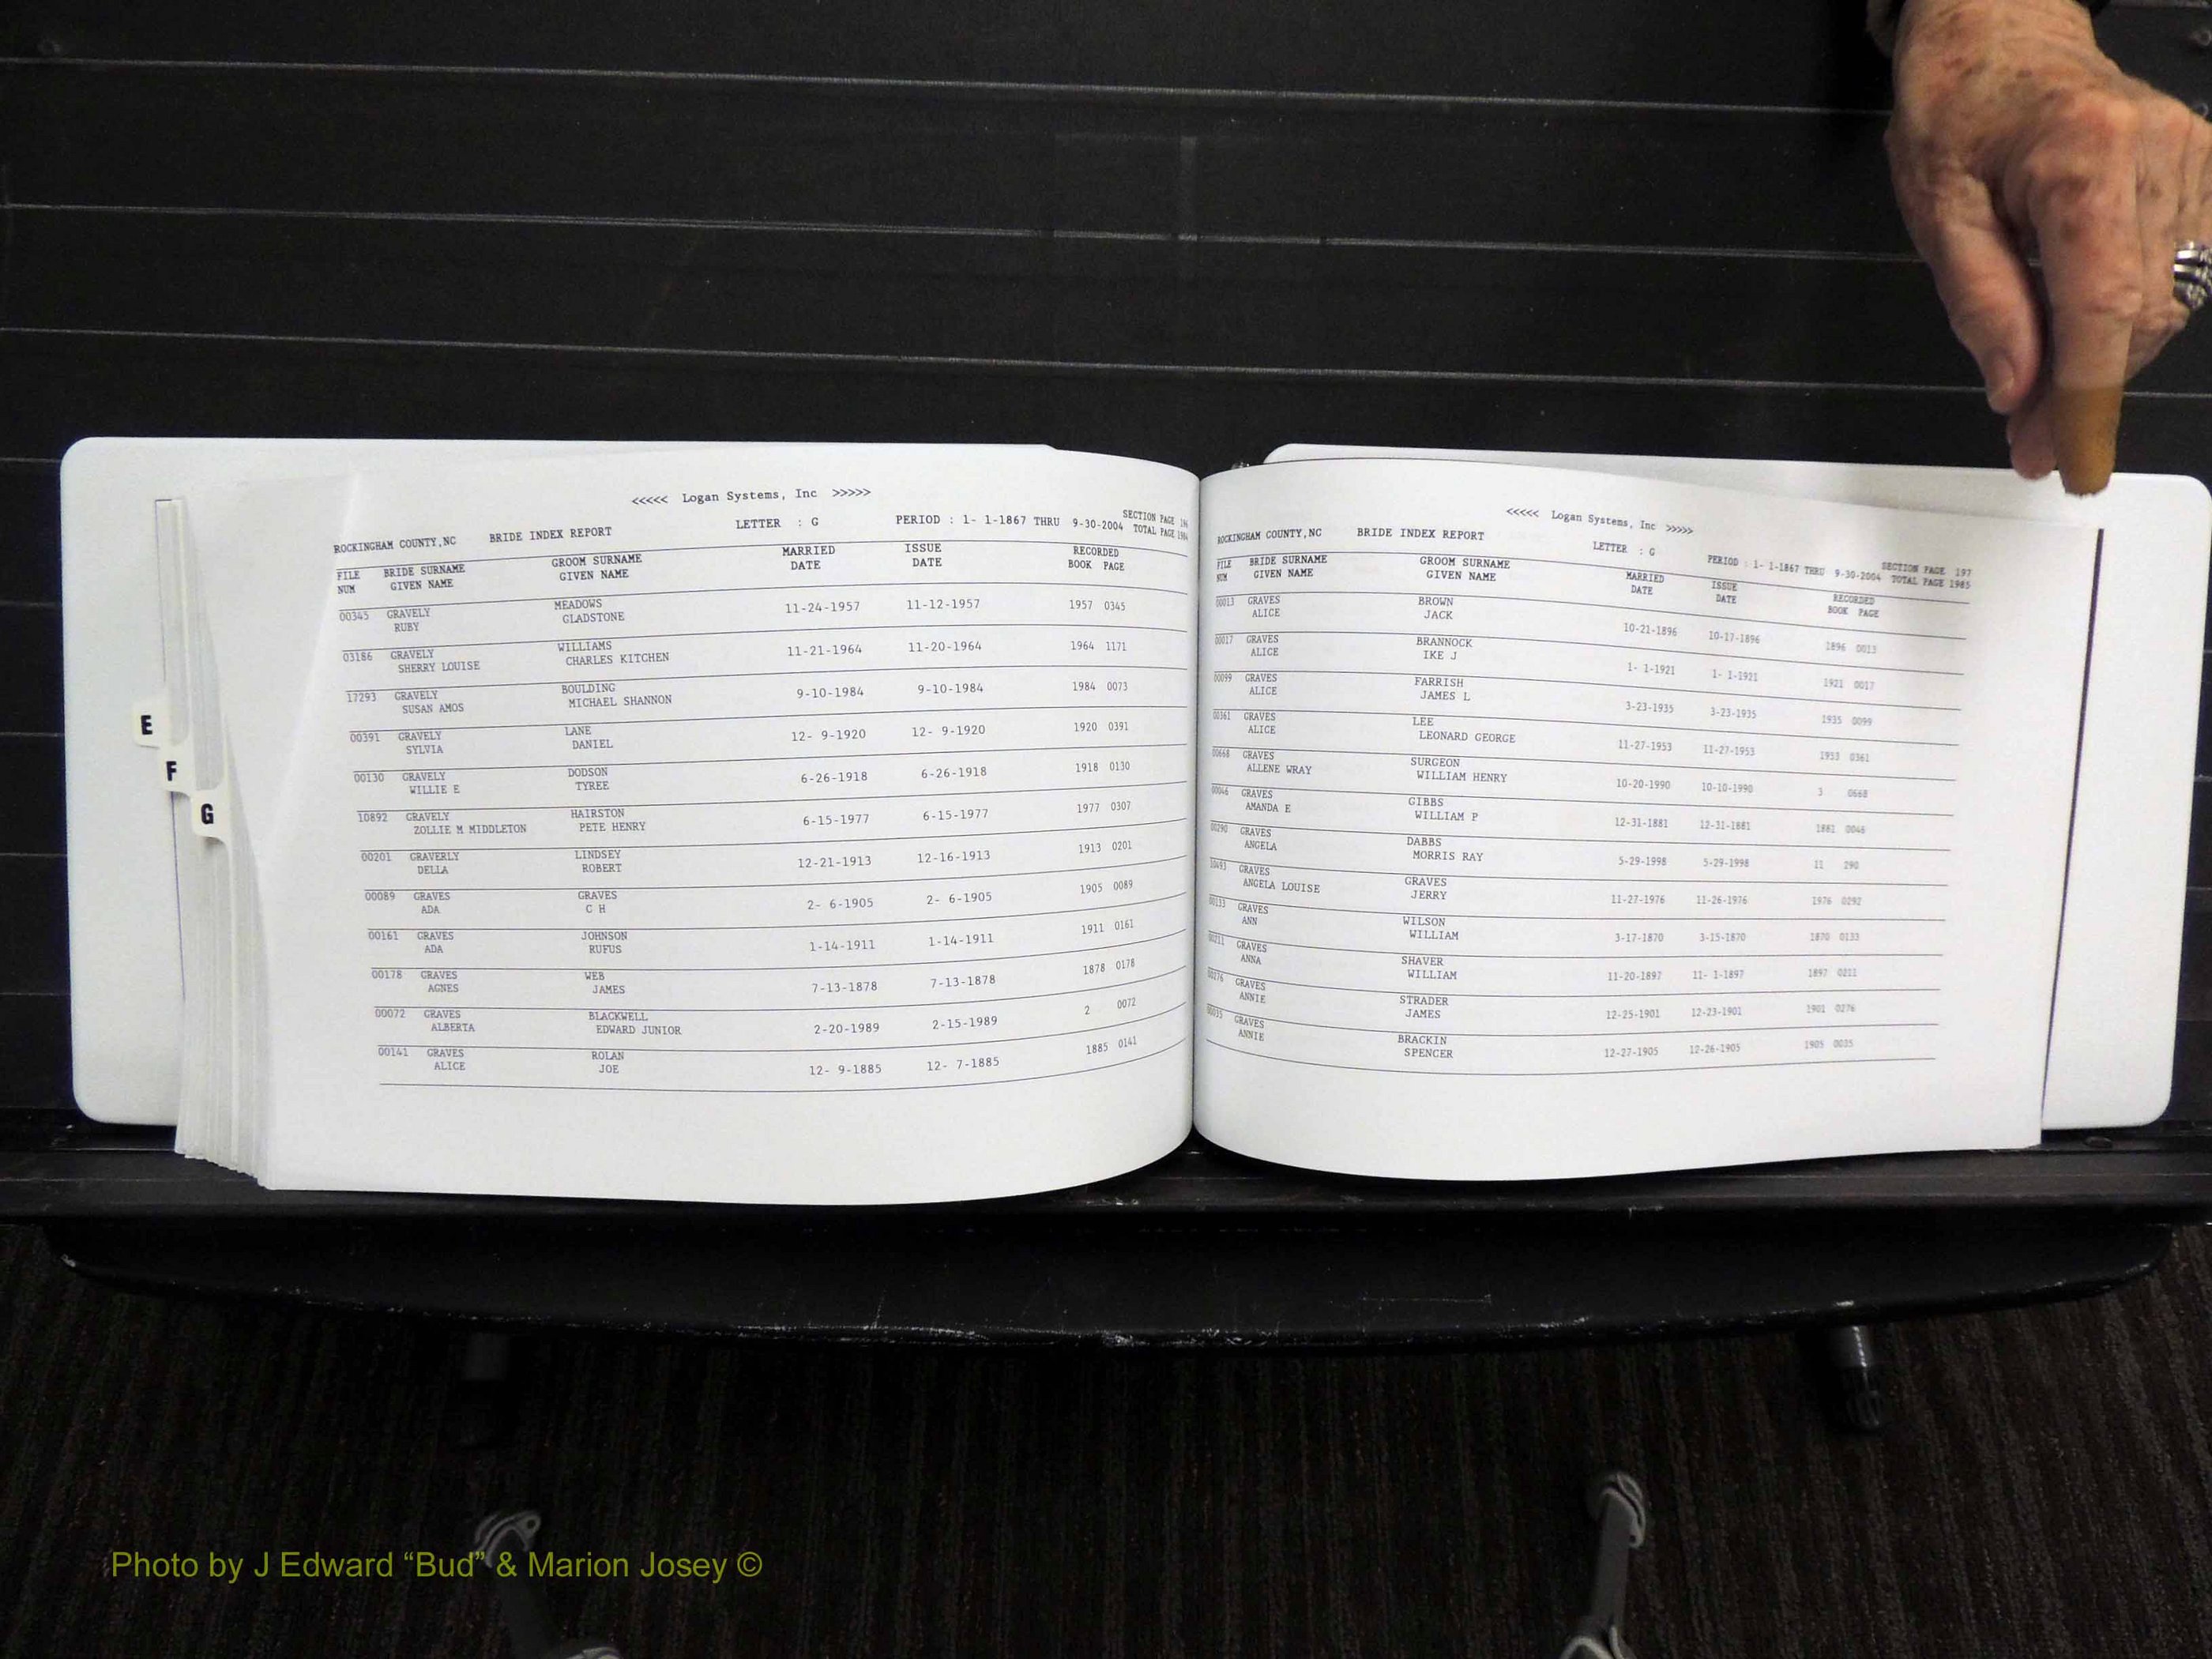 <<<<< Logan Systems, Inc >>>>>
ROCKINGHAM COUNTY,NC BRIDE INDEX REPORT LETTER : G PERIOD : 1- 1-1867 THRU 9-30-2004 SECTION PAGE
TOTAL PAGE
FILE BRIDE SURNAME GROOM SURNAME MARRIED ISSUE RECORDED
NUM GIVEN NAME GIVEN NAME DATE DATE BOOK PAGE
00345 GRAVELY MEADOWS 11-24-1957 11-12-1957 1957 0345
RUBY GLADSTONE
03186 GRAVELY WILLIAMS 11-21-1964 11-20-1964 1964 1171
SHERRY LOUISE CHARLES KITCHEN
17293 GRAVELY BOULDING 9-10-1984 9-10-1984 1984 0073
SUSAN AMOS MICHAEL SHANNON
00391 GRAVELY LANE 12- 9-1920 12- 9-1920 1920 0391
SYLVIA DANIEL
00130 GRAVELY DODSON 6-26-1918 6-26-1918 1918 0130
WILLIE E TYREE
10892 GRAVELY HAIRSTON 6-15-1977 6-15-1977 1977 0307
ZOLLIE M MIDDLETON PETE HENRY
00201 GRAVERLY LINDSEY 12-21-1913 12-16-1913 1913 0201
DELLA ROBERT
00089 GRAVES GRAVES 2- 6-1905 2- 6-1905 1905 0089
ADA C H
00161 GRAVES JOHNSON 1-14-1911 1-14-1911 1911 0161
ADA RUFUS
00178 GRAVES WEB 7-13-1878 7-13-1878 1878 0178
AGNES JAMES
00072 GRAVES BLACKWELL 2-20-1989 2-15-1989 2 0072
ALBERTA EDWARD JUNIOR
00141 GRAVES ROLAN 12- 9-1885 12- 7-1885 1885 0141
ALICE JOE
E
F
G
<<<<< Logan Systems, Inc >>>>>
ROCKINGHAM COUNTY,NC BRIDE INDEX REPORT LETTER : G PERIOD : 1- 1-1867 THRU 9-30-2004 SECTION PAGE 197
TOTAL PAGE 1985
FILE BRIDE SURNAME GROOM SURNAME MARRIED ISSUE RECORDED
NUM GIVEN NAME GIVEN NAME DATE DATE BOOK PAGE
00013 GRAVES BROWN 10-21-1896 10-17-1896 1896 0013
ALICE JACK
00017 GRAVES BRANNOCK 1- 1-1921 1- 1-1921 1921 0017
ALICE IKE J
00099 GRAVES FARRISH 3-23-1935 3-23-1935 1935 0099
ALICE JAMES L
00361 GRAVES LEE 11-27-1953 11-27-1953 1953 0361
ALICE LEONARD GEORGE
00668 GRAVES SURGEON 10-20-1990 10-10-1990 3 0668
ALLENE WRAY WILLIAM HENRY
00046 GRAVES GIBBS 12-31-1881 12-31-1881 1881 0046
AMANDA E WILLIAM P
00290 GRAVES DABBS 5-29-1998 5-29-1998 11 290
ANGELA MORRIS RAY
GRAVES GRAVES 11-27-1976 11-26-1976 1976 0292
ANGELA LOUISE JERRY
00133 GRAVES WILSON 3-17-1870 3-15-1870 1870 0133
ANN WILLIAM
00211 GRAVES SHAVER 11-20-1897 11- 1-1897 1897 0211
ANNA WILLIAM
00276 GRAVES STRADER 12-25-1901 12-23-1901 1901 0276
ANNIE JAMES
00035 GRAVES BRACKIN 12-27-1905 12-26-1905 1905 0035
ANNIE SPENCER
Photo by J Edward “Bud” & Marion Josey ©